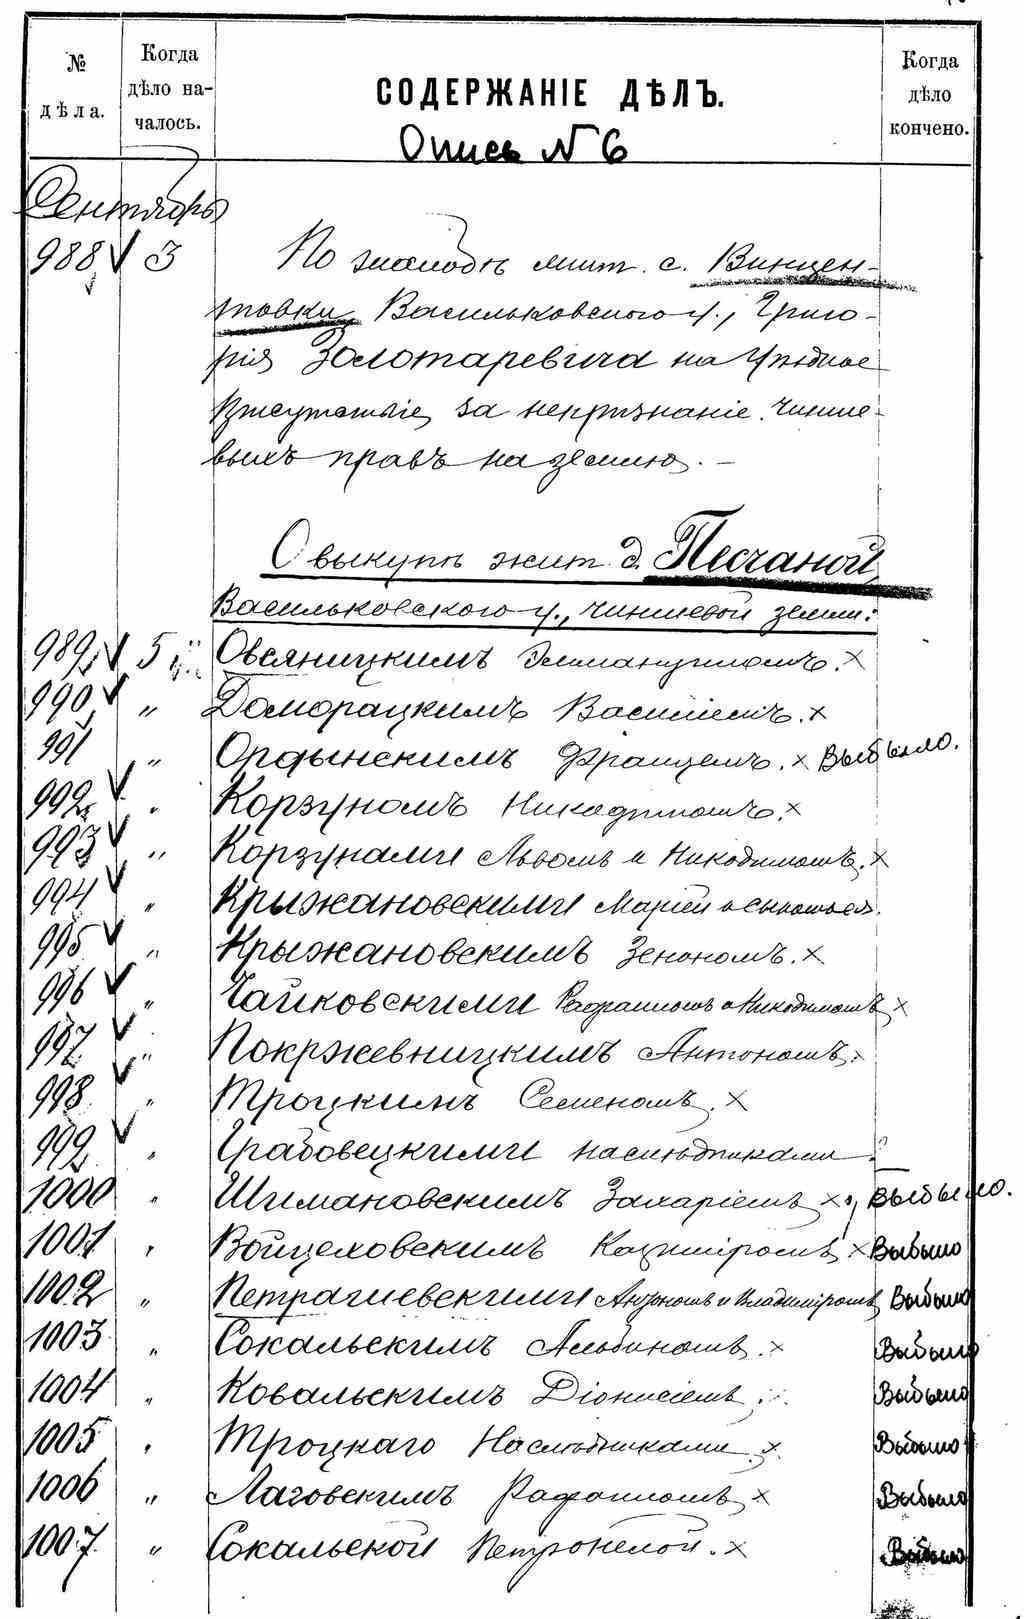 № дѣла.
Когда дѣло началось.
СОДЕРЖАНІЕ ДѢЛЪ.
Когда дѣло кончено.
Опись N 6
Сентябрь
988 3 По жалобѣ жит. с. Винцен-
товки, Васильковскаго у., Григо-
рія Золотаревича на Уѣздное
Присутствіе, за непризнаніе чинше-
выхъ правъ на землю. —
О выкупѣ жит. д. Песчаной,
Васильковскаго у., чиншевой земли:
989 5 Овсяницкимъ Эммануиломъ. ×
990 " Доморацкимъ Василіемъ. ×
991 " Ордынскимъ Францемъ. × Выбыло.
992 " Корзуномъ Никодимомъ. ×
993 " Корзунами Львомъ и Никодимомъ. ×
994 " Крыжановскими Маріей и сыномъ
995 " Крыжановскимъ Зенономъ. ×
996 " Чайковскими Рафаиломъ и Никодимомъ ×
997 " Покржевницкимъ Антономъ. ×
998 " Троцкимъ Семеномъ. ×
999 " Грабовецкими наслѣдниками
1000 " Шимановскимъ Захаріемъ × Выбыло.
1001 " Войцеховскимъ Казиміромъ × Выбыло
1002 " Петрашевскими Антономъ и Владиміромъ Выбыло
1003 " Сокальскимъ Альбиномъ. × Выбыло
1004 " Ковальскимъ Діонисіемъ Выбыло
1005 " Троцкаго Наслѣдниками × Выбыло
1006 " Лаговскимъ Рафаиломъ × Выбыло
1007 " Сокальской Петронелой. × Выбыло